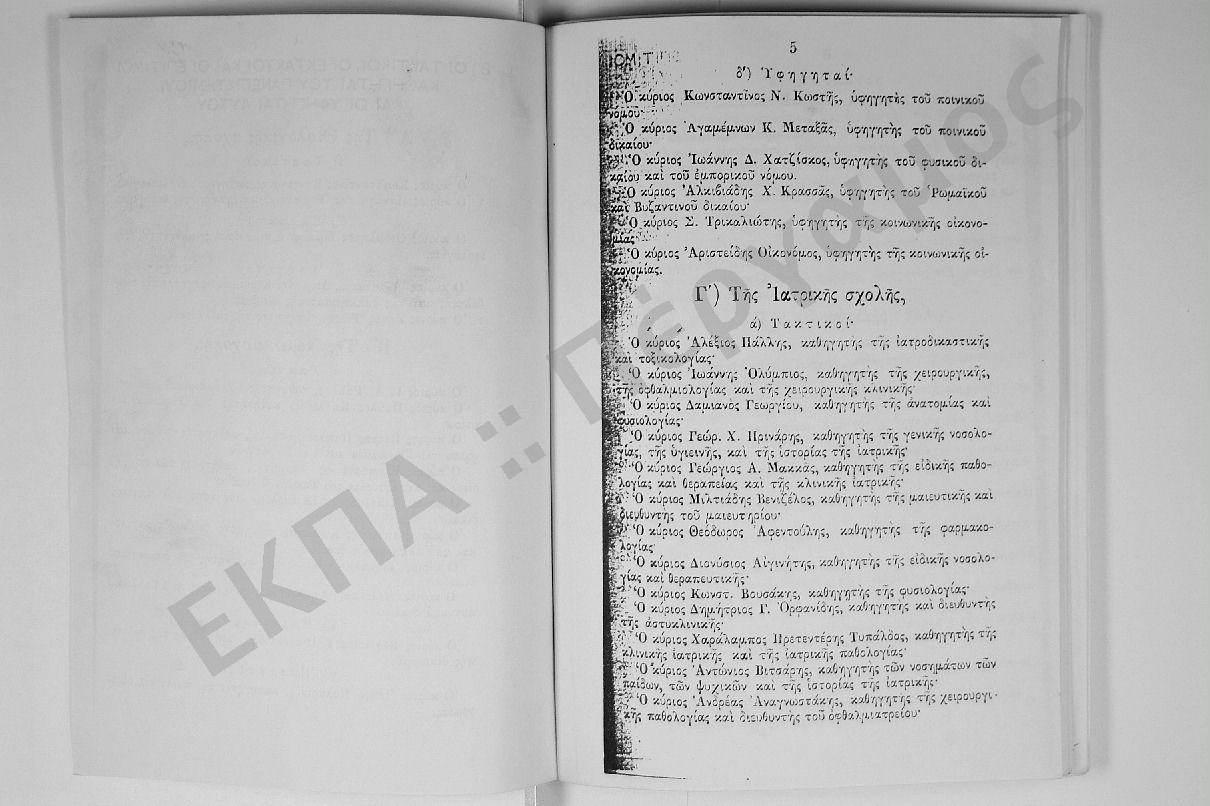 5
δ') Ὑφηγηταί·
Ὁ κύριος Κωνσταντῖνος Ν. Κωστῆς, ὑφηγητὴς τοῦ ποινικοῦ
νόμου·
Ὁ κύριος Ἀγαμέμνων Κ. Μεταξᾶς, ὑφηγητὴς τοῦ ποινικοῦ
δικαίου·
Ὁ κύριος Ἰωάννης Δ. Χατζίσκος, ὑφηγητὴς τοῦ φυσικοῦ δι-
καίου καὶ τοῦ ἐμπορικοῦ νόμου.
Ὁ κύριος Ἀλκιβιάδης Χ. Κρασσᾶς, ὑφηγητὴς τοῦ Ῥωμαϊκοῦ
καὶ Βυζαντινοῦ δικαίου·
Ὁ κύριος Σ. Τρικαλιώτης, ὑφηγητὴς τῆς κοινωνικῆς οἰκονο-
μίας·
Ὁ κύριος Ἀριστείδης Οἰκονόμος, ὑφηγητὴς τῆς κοινωνικῆς οἰ-
κονομίας.
Γ') Τῆς Ἰατρικῆς σχολῆς,
ά) Τακτικοί·
Ὁ κύριος Ἀλέξιος Πάλλης, καθηγητὴς τῆς ἰατροδικαστικῆς
καὶ τοξικολογίας·
Ὁ κύριος Ἰωάννης Ὀλύμπιος, καθηγητὴς τῆς χειρουργικῆς,
τῆς ὀφθαλμιολογίας καὶ τῆς χειρουργικῆς κλινικῆς·
Ὁ κύριος Δαμιανὸς Γεωργίου, καθηγητὴς τῆς ἀνατομίας καὶ
φυσιολογίας·
Ὁ κύριος Γεώρ. Χ. Πρινάρης, καθηγητὴς τῆς γενικῆς νοσολο-
γίας, τῆς ὑγιεινῆς, καὶ τῆς ἱστορίας τῆς ἰατρικῆς·
Ὁ κύριος Γεώργιος Α. Μακκᾶς, καθηγητὴς τῆς εἰδικῆς παθο-
λογίας καὶ θεραπείας καὶ τῆς κλινικῆς ἰατρικῆς·
Ὁ κύριος Μιλτιάδης Βενιζέλος, καθηγητὴς τῆς μαιευτικῆς καὶ
διευθυντὴς τοῦ μαιευτηρίου·
Ὁ κύριος Θεόδωρος Ἀφεντούλης, καθηγητὴς τῆς φαρμακο-
λογίας·
Ὁ κύριος Διονύσιος Αἰγινήτης, καθηγητὴς τῆς εἰδικῆς νοσολο-
γίας καὶ θεραπευτικῆς·
Ὁ κύριος Κωνστ. Βουσάκης, καθηγητὴς τῆς φυσιολογίας·
Ὁ κύριος Δημήτριος Γ. Ὀρφανίδης, καθηγητὴς καὶ διευθυντὴς
τῆς ἀστυκλινικῆς·
Ὁ κύριος Χαράλαμπος Πρετεντέρης Τυπάλδος, καθηγητὴς τῆς
κλινικῆς ἰατρικῆς καὶ τῆς ἰατρικῆς παθολογίας·
Ὁ κύριος Ἀντώνιος Βιτσάρης, καθηγητὴς τῶν νοσημάτων τῶν
παίδων, τῶν ψυχικῶν καὶ τῆς ἱστορίας τῆς ἰατρικῆς·
Ὁ κύριος Ἀνδρέας Ἀναγνωστάκης, καθηγητὴς τῆς χειρουργι-
κῆς παθολογίας καὶ διευθυντὴς τοῦ ὀφθαλμιατρείου·
ΕΚΠΑ :: Πέργαμος